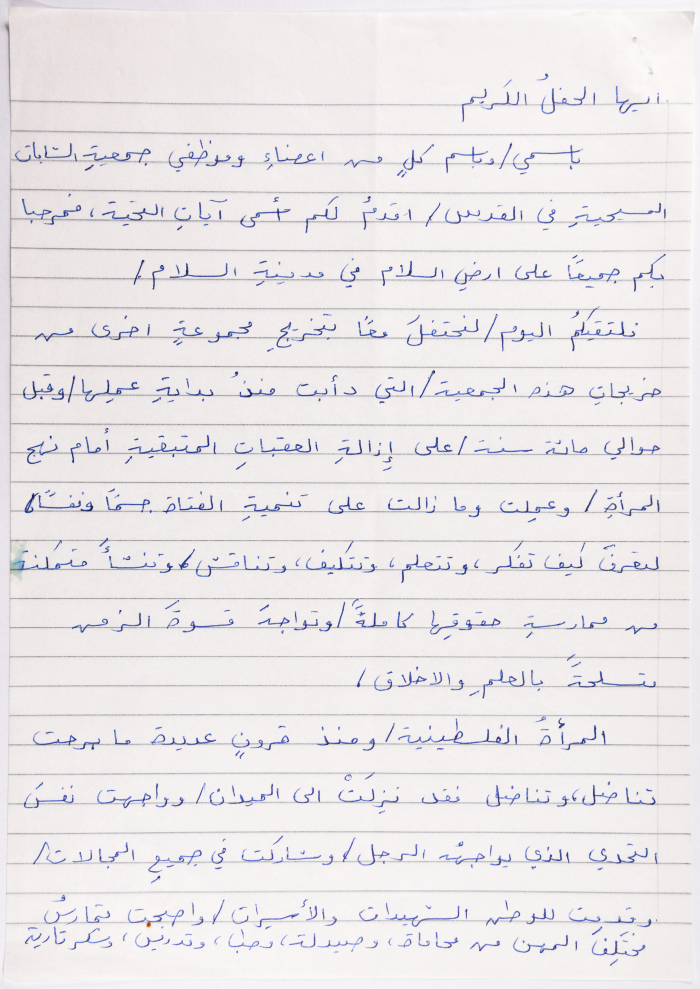 ايها الحفلُ الكريم
باسمي/وباسم كلٍ من اعضاءِ وموظفي جمعيةِ الشابات
المسيحيةِ في القدس/ اقدمُ لكم أسمى آياتِ التحية، فمرحبا
بكم جميعًا على ارضِ السلام في مدينةِ السلام/
نلتقيكمُ اليوم/لنحتفلَ معًا بتخريجِ مجموعةٍ اخرى من
خريجاتِ هذه الجمعية/التي دأبت منذُ بدايةِ عملِها/وقبل
حوالي مائة سنة/على إِزالةِ العقباتِ المتبقيةِ أمام نهج
المرأةِ/ وعملت وما زالت على تنميةِ الفتاة جسمًا ونفسًا/
لتعرفَ كيف تفكر، وتتعلم، وتتكيف، وتناقش/وتنشأَ متمكنة
من ممارسةِ حقوقِها كاملةً/وتواجهَ قسوةَ الزمن
متسلحةً بالعلمِ والاخلاق/
المرأةُ الفلسطينية/ومنذ قرونٍ عديدة ما برحت
تناضل،وتناضل فقد نزلَتْ الى الميدان/وواجهت نفسَ
التحدي الذي يواجهُه الرجل/وشاركت في جميعِ المجالات/
وقدمت للوطن الشهيدات والأسيرات/واصبحت تمارسُ
مختلِفَ المهن من محاماة، وصيدلة، وطب، وتدريس، وسكرتارية